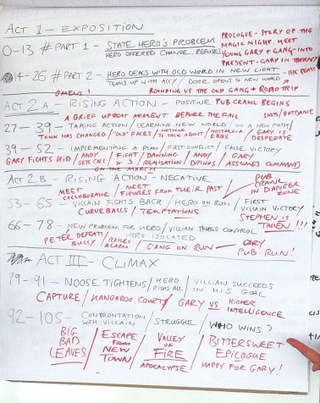 ACT 1 - EXPOSITION
PROLOGUE - STORY OF THE
MAGIC NIGHT MEET
YOUNG GARY + GANG - INTO
PRESENT - GARY IN THERAPY
0-13 # PART 1 - STATE HERO'S PROBLEM
HERO OFFERED CHANGE. REFUSES
14-26 # PART 2 - HERO DEALS WITH OLD WORLD IN NEW LIGHT
TEAMS UP WITH ALLY / DOOR OPENS TO NEW WORLD
OMENS!
ROUNDING UP THE OLD GANG + ROAD TRIP
ACT 2A - RISING ACTION - POSITIVE PUB CRAWL BEGINS
A BRIEF UPBEAT MOMENT BEFORE THE FALL
27-39 - TAKING ACTION / LEARNING NEW WORLD / IN A NEW PATH
TOWN HAS CHANGED / OLD FACES / NOTHING TO TALK ABOUT / NOSTALGIA EBBS / GARY IS DESPERATE
39-52 - IMPLEMENTING A PLAN / FIRST CONFLICT / FALSE VICTORY
GARY FIGHTS KID / ANDY / FIGHT X 3 / DAWNING REALISATION / ANDY / GARY ASSUMES COMMAND
ACT 2B - RISING ACTION - NEGATIVE
PUB CRAWL IN DANGER ZONE
MEET COLLABORATOR / MEET FIGURES FROM THEIR PAST
53-65 - VILLAIN FIGHTS BACK / HERO ON RUN / FIRST VILLAIN VICTORY
CURVEBALLS / TEMPTATIONS
STEPHEN IS TAKEN!!!
66-78 - NEW PROBLEM FOR HERO / VILLAIN TAKES CONTROL
HERO ISOLATED
PETER DEFEATS BULLY / RAISES ALARM / GANG ON RUN / GARY PUB RUN!
ACT III - CLIMAX
79-91 - NOOSE TIGHTENS / HERO RISKS ALL / VILLAIN SUCCEEDS IN HIS GOAL
CAPTURE / KANGAROO COURT / GARY VS HIGHER INTELLIGENCE
92-105 - CONFRONTATION WITH VILLAIN / STRUGGLE / WHO WINS?
BIG BAD LEAVES / ESCAPE FROM NEW TOWN / VALLEY OF FIRE APOCALYPSE / BITTERSWEET EPILOGUE HAPPY FOR GARY!